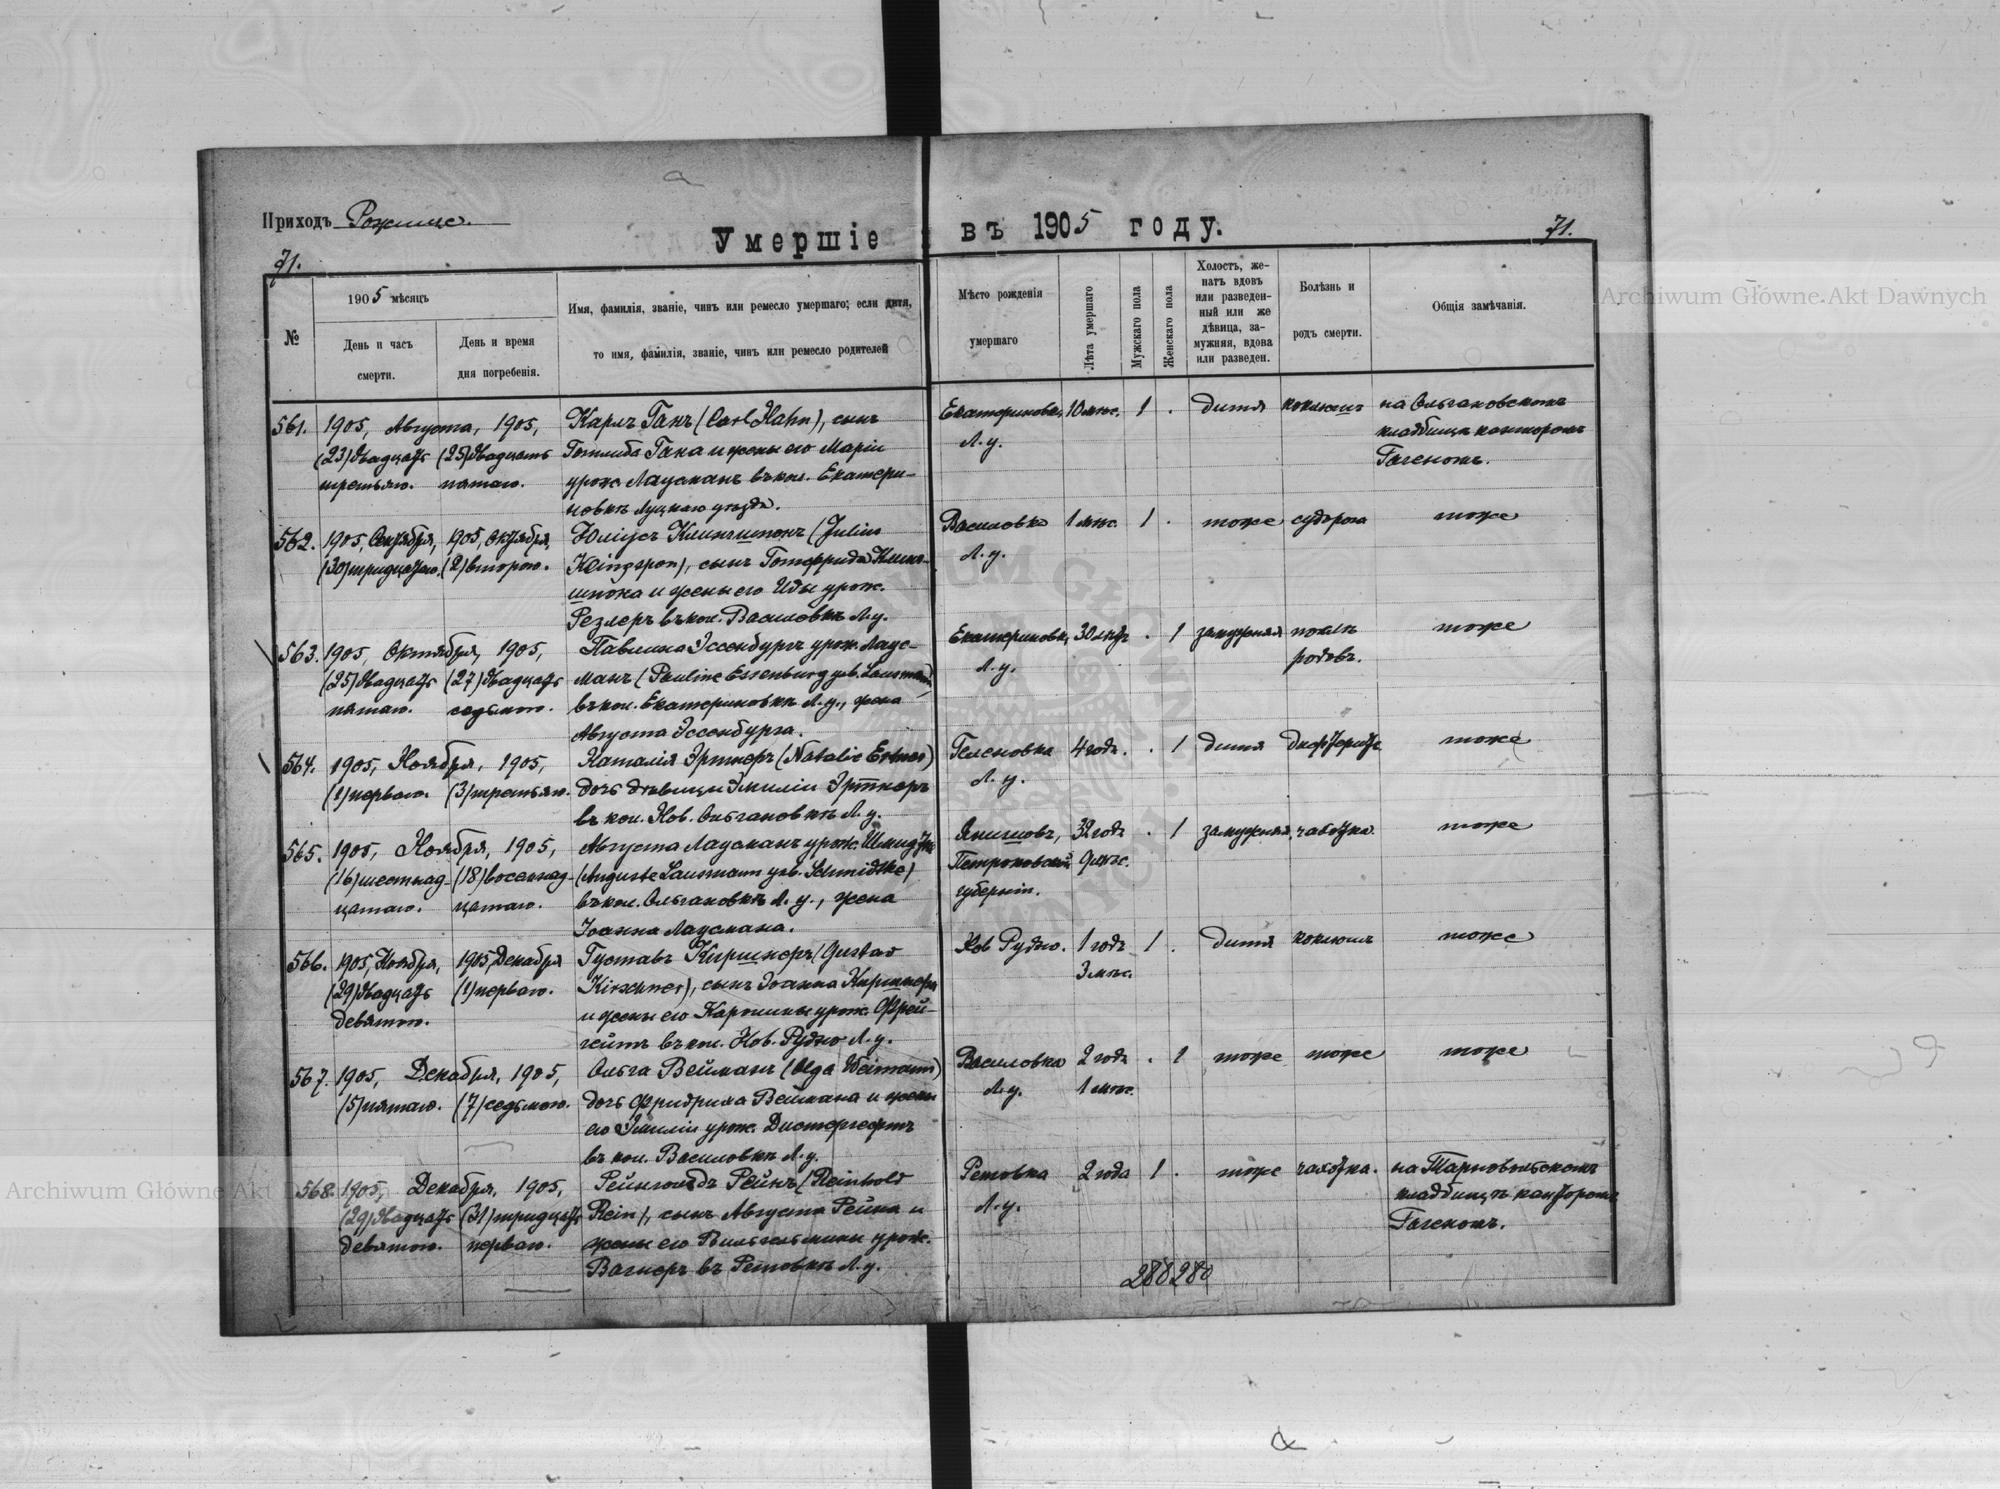 Приходъ Рожище.
Умершіе въ 1905 году.
71.
71.
№
1905 мѣсяцъ
День и часъ
смерти.
День и время
дня погребенія.
Имя, фамилія, званіе, чинъ или ремесло умершаго; если дитя,
то имя, фамилія, званіе, чинъ или ремесло родителей
Мѣсто рожденія
умершаго
Лѣта умершаго
Мужскаго пола
Женскаго пола
Холостъ, же-
натъ вдовъ
или разведен-
ный или же
дѣвица, за-
мужняя, вдова
или разведен.
Болѣзнь и
родъ смерти.
Общія замѣчанія.
561. 1905, Августа, 1905,
(23) двадцать (25) двадцать
третьяго. пятаго.
Карлъ Ганъ (Carl Hahn), сынъ
Готлиба Гана и жены его Маріи
урож. Лаусманъ въ кол. Екатери-
новкѣ Луцкаго уѣзда.
Екатериновка 10 мѣс. 1 . дитя коклюшъ на Ольгановскомъ
Л. у. кладбищѣ канторомъ
Гагеномъ.
562. 1905, Сентября, 1905, Октября,
(30) тридцатаго. (2) второго.
Юліусъ Клингшпонъ (Julius
Klingspon), сынъ Готфрида Клинг-
шпона и жены его Иды урож.
Резлеръ въ кол. Василовкѣ Л. у.
Василовка 1 мѣс. 1 . тоже судорога тоже
Л. у.
563. 1905, Октября, 1905,
(25) двадцать (27) двадцать
пятаго. седьмого.
Павлина Эссенбургъ урож. Лаус-
манъ (Pauline Essenburg geb. Lausmann)
въ кол. Екатериновкѣ Л. у., жена
Августа Эссенбурга.
Екатериновка 30 лѣтъ . 1 замужняя послѣ тоже
Л. у. родовъ.
564. 1905, Ноября, 1905,
(1) перваго. (3) третьяго.
Наталія Эртнеръ (Natalie Ertner)
дочь дѣвицы Эмиліи Эртнеръ
въ кол. Нов. Ольгановкѣ Л. у.
Геленовка 4 года. . 1 дитя дифтеритъ тоже
Л. у.
565. 1905, Ноября, 1905,
(16) шестнад- (18) восемнад-
цатаго. цатаго.
Августа Лаусманъ урож. Шмидтке
(Auguste Lausmann geb. Schmidtke)
въ кол. Ольгановкѣ Л. у., жена
Іоанна Лаусмана.
Янишовъ, 32 года . 1 замужняя чахотка тоже
Петроковской 9 мѣс.
губерніи.
566. 1905, Ноября, 1905, Декабря
(29) двадцать (1) перваго.
девятого.
Густавъ Киршнеръ (Gustav
Kirschner), сынъ Іоанна Киршнера
и жены его Каролины урож. Фрей-
гейтъ въ кол. Нов. Рудно Л. у.
Нов Рудно. 1 годъ 1 . дитя коклюшъ тоже
3 мѣс.
567. 1905, Декабря, 1905,
(5) пятаго. (7) седьмого.
Ольга Вейманъ (Olga Weimann)
дочь Фридриха Веймана и жены
его Эмиліи урож. Дистергефтъ
въ кол. Василовкѣ Л. у.
Василовка 2 года . 1 тоже тоже тоже
Л. у. 1 мѣс.
568. 1905, Декабря, 1905,
(29) двадцать (31) тридцать
девятого. перваго.
Рейнгольдъ Рейнъ (Reinhold
Rein), сынъ Августа Рейна и
жены его Вильгельмины урож.
Вагнеръ въ Ретовкѣ Л. у.
Ретовка 2 года 1 . тоже чахотка.
Л. у.
кладбищѣ канторомъ
Гагеномъ.
288 280
Archiwum Główne Akt Dawnych
Archiwum Główne Akt Dawnych